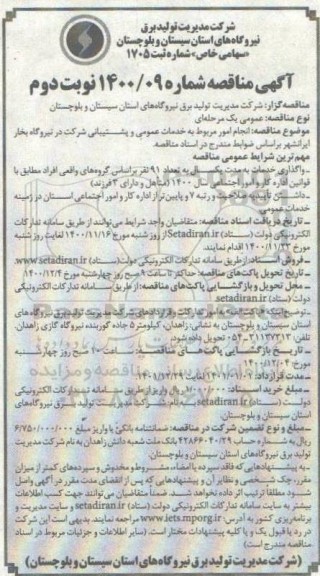 شرکت مدیریت تولید برق
نیروگاه‌های استان سیستان و بلوچستان
«سهامی خاص» شماره ثبت ۱۷۰۵
آگهی مناقصه شماره ۱۴۰۰/۰۹ نوبت دوم
مناقصه‌گزار: شرکت مدیریت تولید برق نیروگاه‌های استان سیستان و بلوچستان
نوع مناقصه: عمومی یک مرحله‌ای
موضوع مناقصه: انجام امور مربوط به خدمات عمومی و پشتیبانی شرکت در نیروگاه بخار
ایرانشهر براساس ضوابط مندرج در اسناد مناقصه.
مهم‌ترین شرایط عمومی مناقصه
ـ واگذاری خدمات به مدت یکسال به تعداد ۹۱ نفر براساس گروه‌های واقعی افراد مطابق با
قوانین اداره کار و امور اجتماعی سال ۱۴۰۰ (متأهل و دارای ۲ فرزند)
ـ داشتن تأیید صلاحیت و رتبه ۷ و پایین‌تر از اداره کار و امور اجتماعی استان در زمینه
خدمات عمومی.
ـ تاریخ دریافت اسناد مناقصه: متقاضیان واجد شرایط می‌توانند از طریق سامانه تدارکات
الکترونیکی دولت (ستاد) Setadiran.ir از روز شنبه مورخ ۱۴۰۰/۱۱/۱۶ لغایت روز شنبه
مورخ ۱۴۰۰/۱۱/۲۳ اقدام نمایند.
ـ فروش اسناد: از طریق سامانه تدارکات الکترونیکی دولت (ستاد) www.setadiran.ir
ـ تاریخ تحویل پاکت‌های مناقصه: حداکثر تا ساعت ۹ صبح روز چهارشنبه مورخ ۱۴۰۰/۱۲/۴
ـ محل تحویل و بازگشایی پاکت‌های مناقصه: از طریق سامانه تدارکات الکترونیکی
دولت (ستاد) setadiran.ir
استان سیستان و بلوچستان به نشانی: زاهدان، کیلومتر ۵ جاده گوربند نیروگاه گازی زاهدان.
تلفن: ۳۱۱۳۷۳۱۳-۰۵۴ تحویل داده شود.
ـ تاریخ بازگشایی پاکت‌های مناقصه: ساعت ۱۰ صبح روز چهارشنبه
مورخ ۱۴۰۰/۱۲/۰۴
ـ مبلغ خرید اسناد: ۱/۰۰۰/۰۰۰ ریال واریز از طریق سامانه تدارکات الکترونیکی
دولت (ستاد) setadiran.ir به نام شرکت مدیریت تولید برق نیروگاه‌های
استان سیستان و بلوچستان.
ـ مبلغ و نوع تضمین شرکت در مناقصه: ضمانتنامه بانکی یا واریز مبلغ ۶/۷۵۰/۰۰۰/۰۰۰
ریال به شماره حساب ۴۲۸۶۶۰۴۰۳۹ بانک ملت شعبه دانش زاهدان به نام شرکت مدیریت
تولید برق نیروگاه‌های استان سیستان و بلوچستان.
ـ به پیشنهادهایی که فاقد سپرده یا امضاء، مشروط و مخدوش و سپرده‌های کمتر از میزان
مقرر، چک شخصی و نظایر آن و پیشنهادهایی که پس از انقضای مدت مقرر در آگهی واصل
شود مطلقاً ترتیب اثر داده نخواهد شد. ضمناً متقاضیان می‌توانند جهت کسب اطلاعات
بیشتر به سایت سامانه تدارکات الکترونیکی دولت (ستاد) setadiran.ir و سایت مدیریت و
برنامه‌ریزی کشور به آدرس: www.iets.mporg.ir مراجعه نمایند. بدیهی است این شرکت
در رد یا قبول یک و یا کلیه پیشنهادات مختار است. (سایر اطلاعات و جزئیات مربوط در اسناد
مناقصه مندرج است)
(شرکت مدیریت تولید برق نیروگاه‌های استان سیستان و بلوچستان)